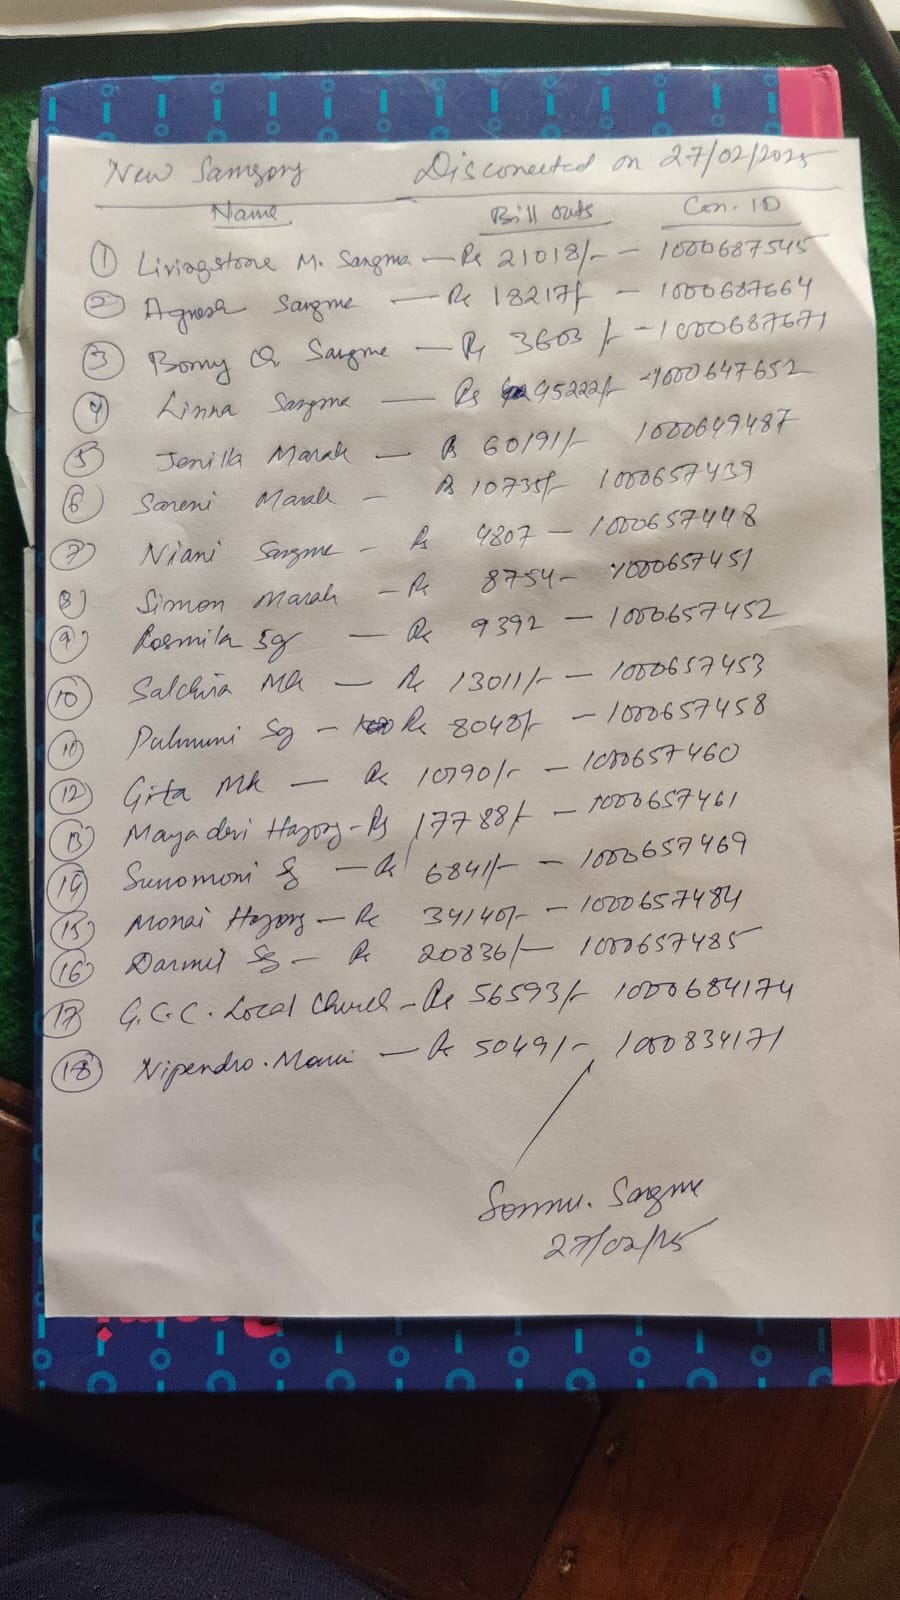 New Samgong Disconected on 27/02/2025
Name Bill outs Con. ID
① Livingstone M. Sangma — Rs 21018/- — 1000687545
② Agnesh Sangma — Rs 18217/- — 1000687664
③ Bomy Ch Sangma — Rs 3603/- — 1000687671
④ Linna Sangma — Rs 95222/- — 1000647652
⑤ Jenilla Marak — Rs 60191/- 1000649487
⑥ Sareni Marak — Rs 10735/- 1000657439
⑦ Niani Sangma — Rs 4807 — 1000657448
⑧ Simon Marak — Rs 8754 — 1000657451
⑨ Rosmila Sg — Rs 9392 — 1000657452
⑩ Salchira Mk — Rs 13011/- — 1000657453
⑪ Palmuni Sg — Rs 8048/- — 1000657458
⑫ Gita Mk — Rs 10790/- — 1000657460
⑬ Mayadevi Hazong — Rs 17788/- — 1000657461
⑭ Sunomoni Sg — Rs 6841/- — 1000657469
⑮ Monai Hazong — Rs 34140/- — 1000657484
⑯ Darmil Sg — Rs 20836/- 1000657485
⑰ G.C.C. Local Church — Rs 56593/- 1000684174
⑱ Nipendro. — Rs 5049/- 1000834171
Sangma
27/02/25